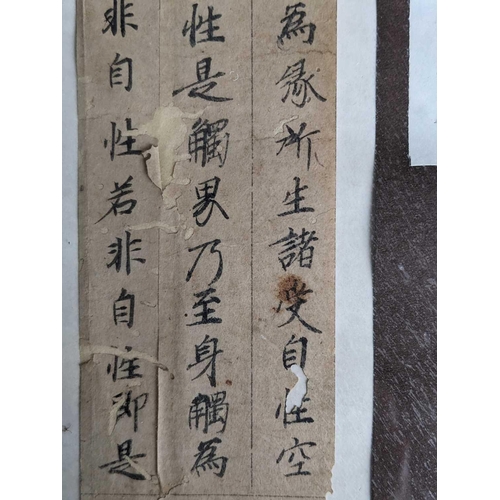 為緣所生諸受自性空
性是觸界乃至身觸為
非自性若非自性即是